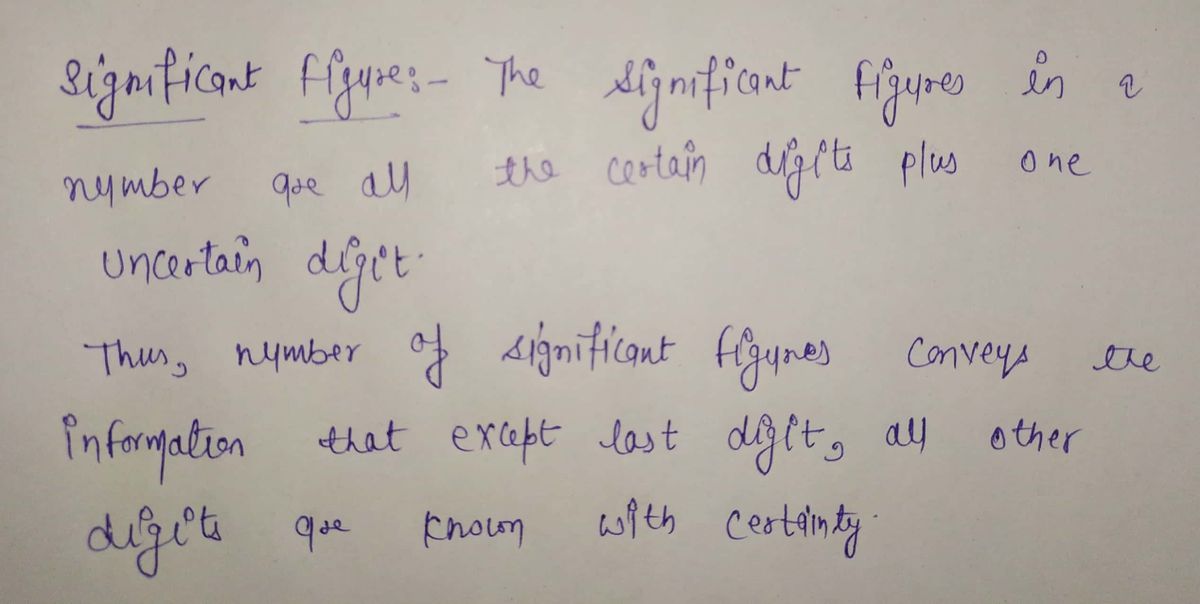 Significant figure:- The significant figures in a
number are all the certain digits plus one
uncertain digit.
Thus, number of significant figures conveys the
information that except last digit, all other
digits are known with certainty.